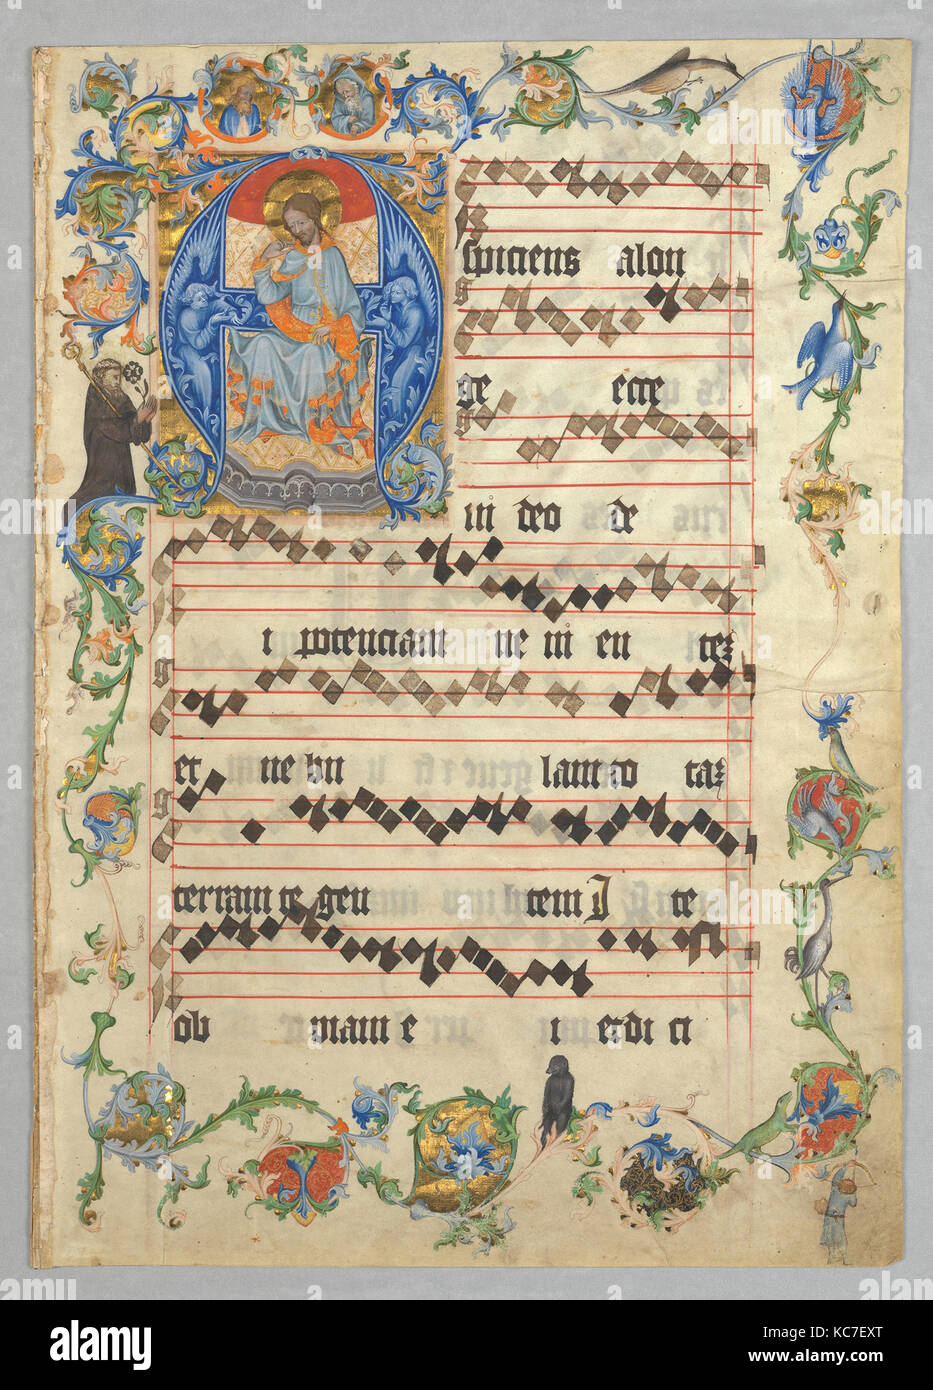 A
spiciens alon
ge ecce
in deo de
i potenciam ne ni en tez
et ne bu lam to taz
terram te gen tem I te
ob mam e i et di ci
alamy
Image ID: KC7EXT
www.alamy.com